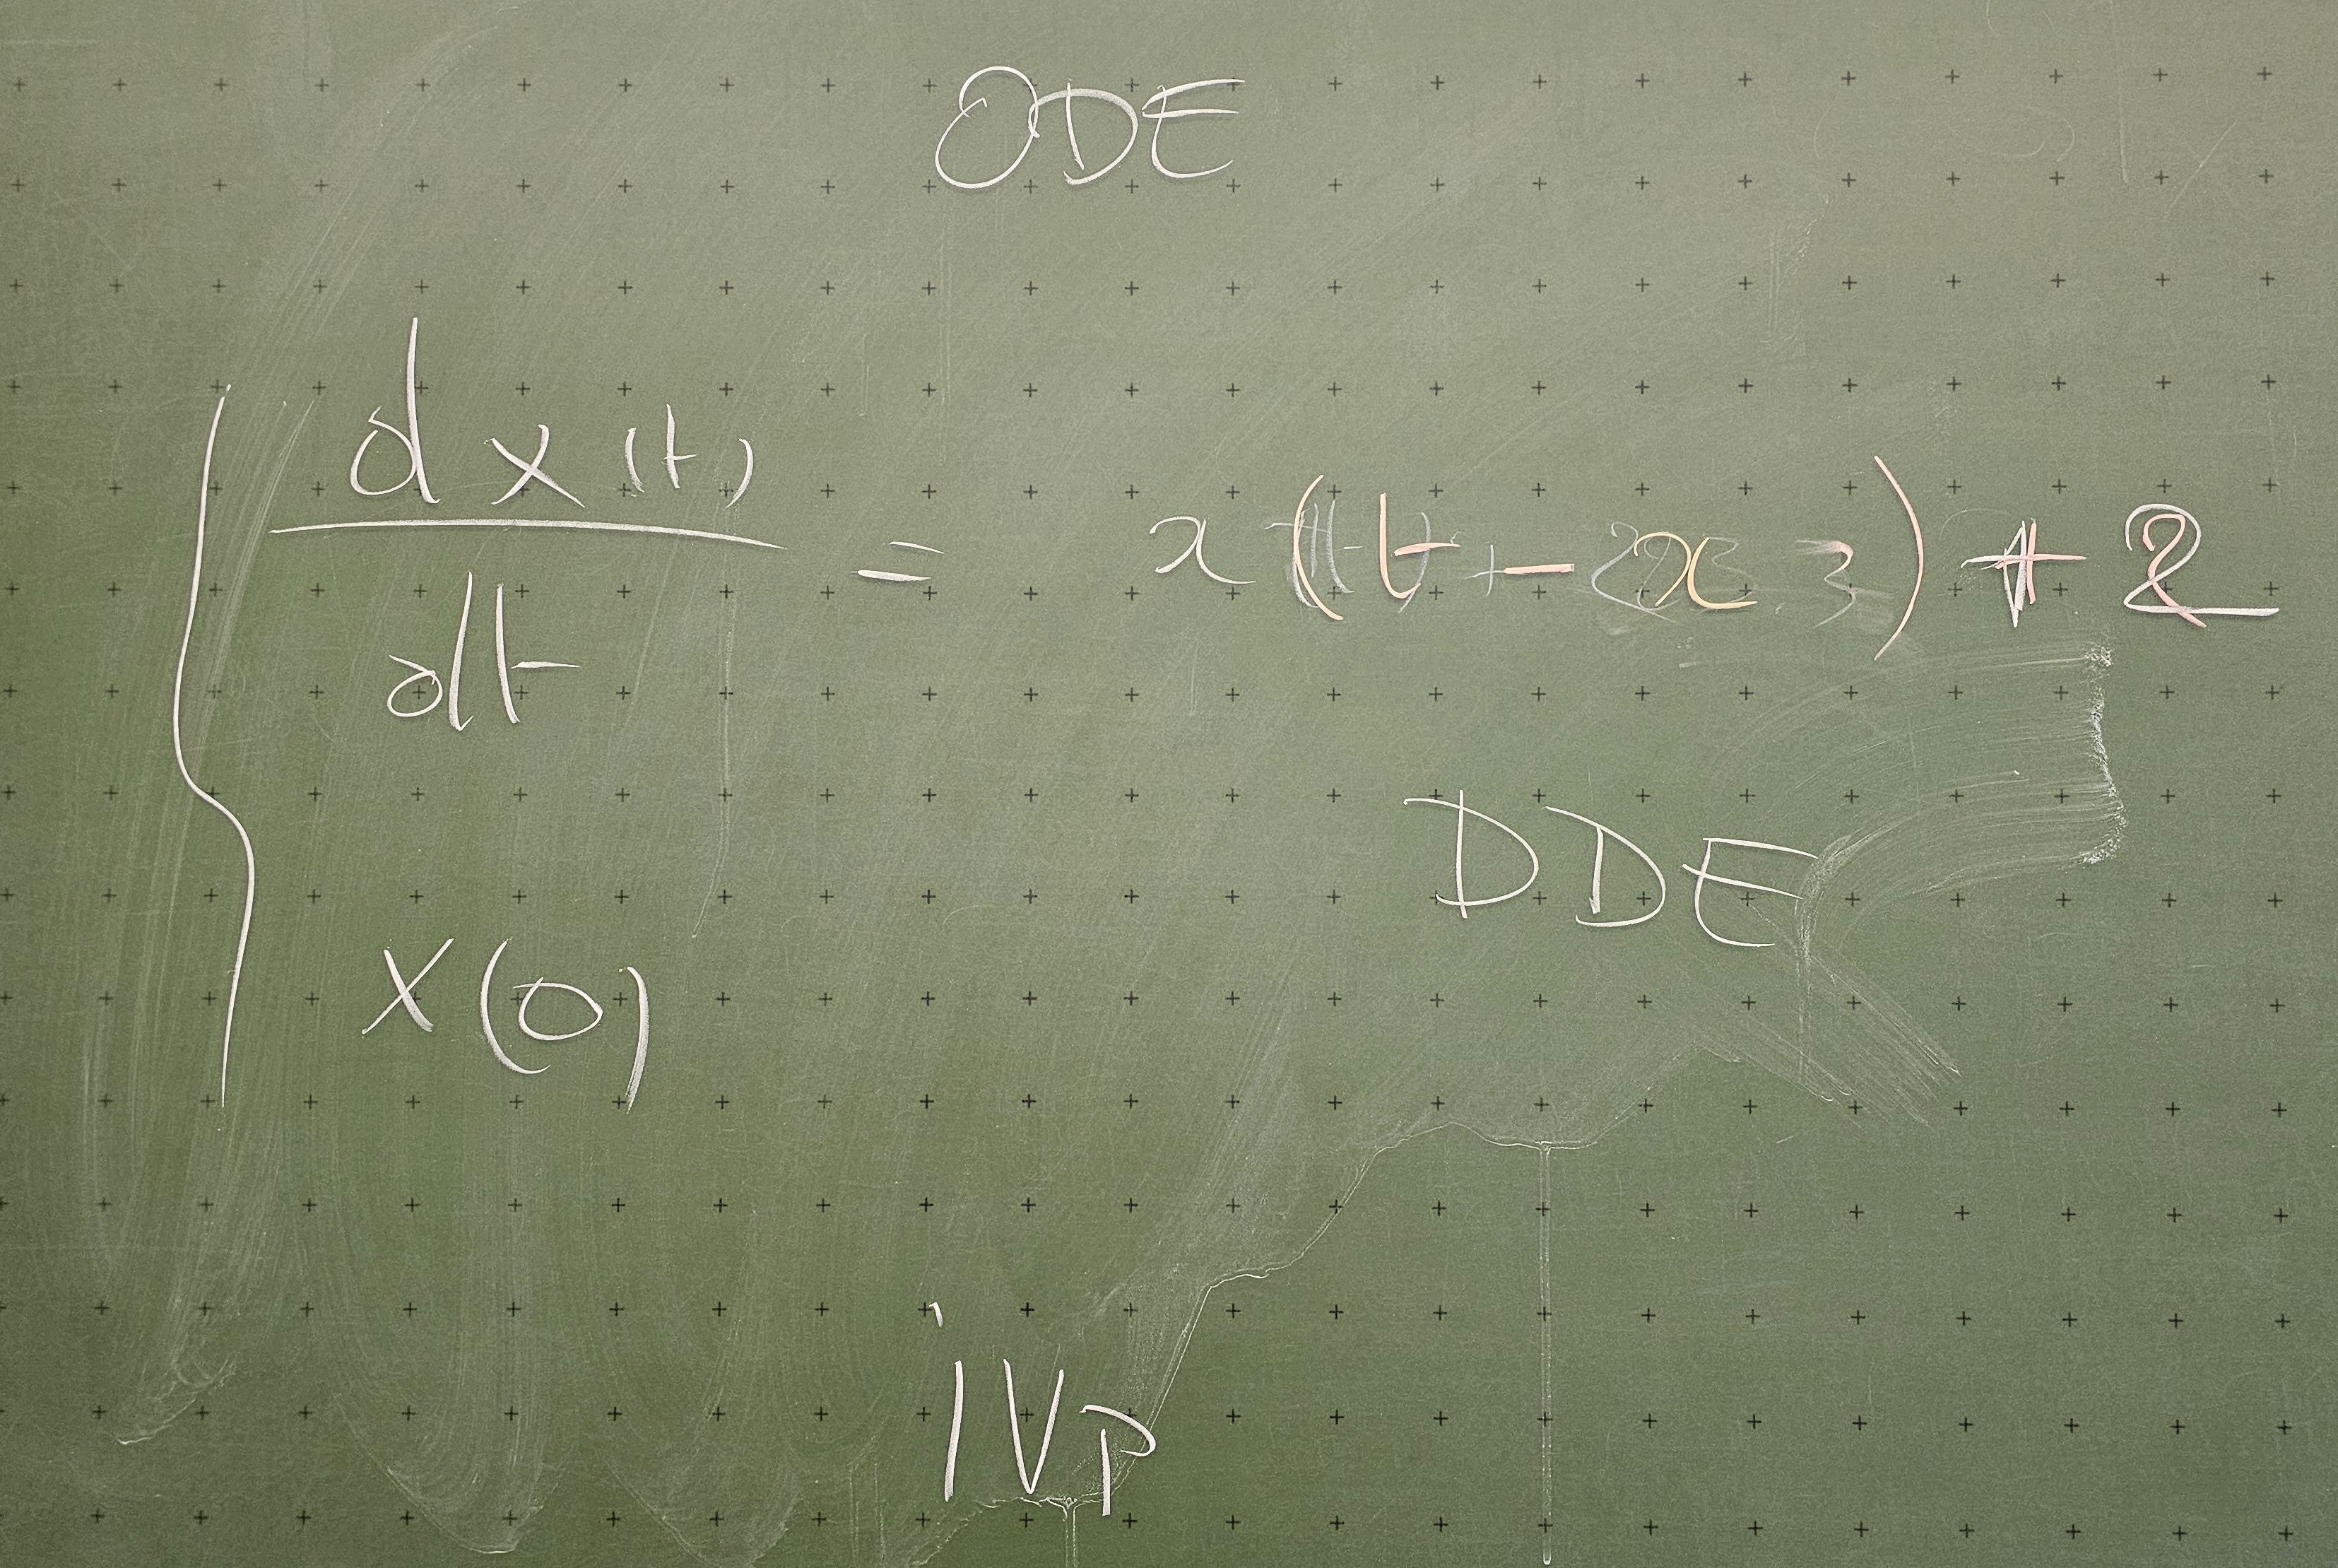 ODE
dx(t)
dt
= x(t - x 3) + 2
DDE
x(0)
IVP